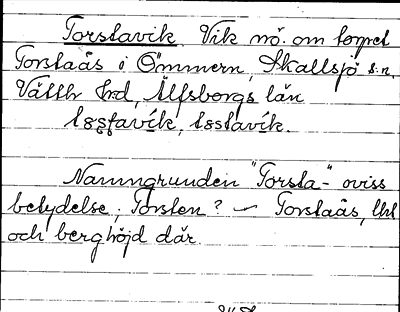 Torstavik. Vik nö. om torpet
Torstaås i Ömmern, Skallsjö s:n,
Vättle hd, Älfsborgs län
tɞstavík, tɞstavík.
Namngrunden "Torsta-" oviss
betydelse; Torsten? — Torstaås,
och berghöjd där.